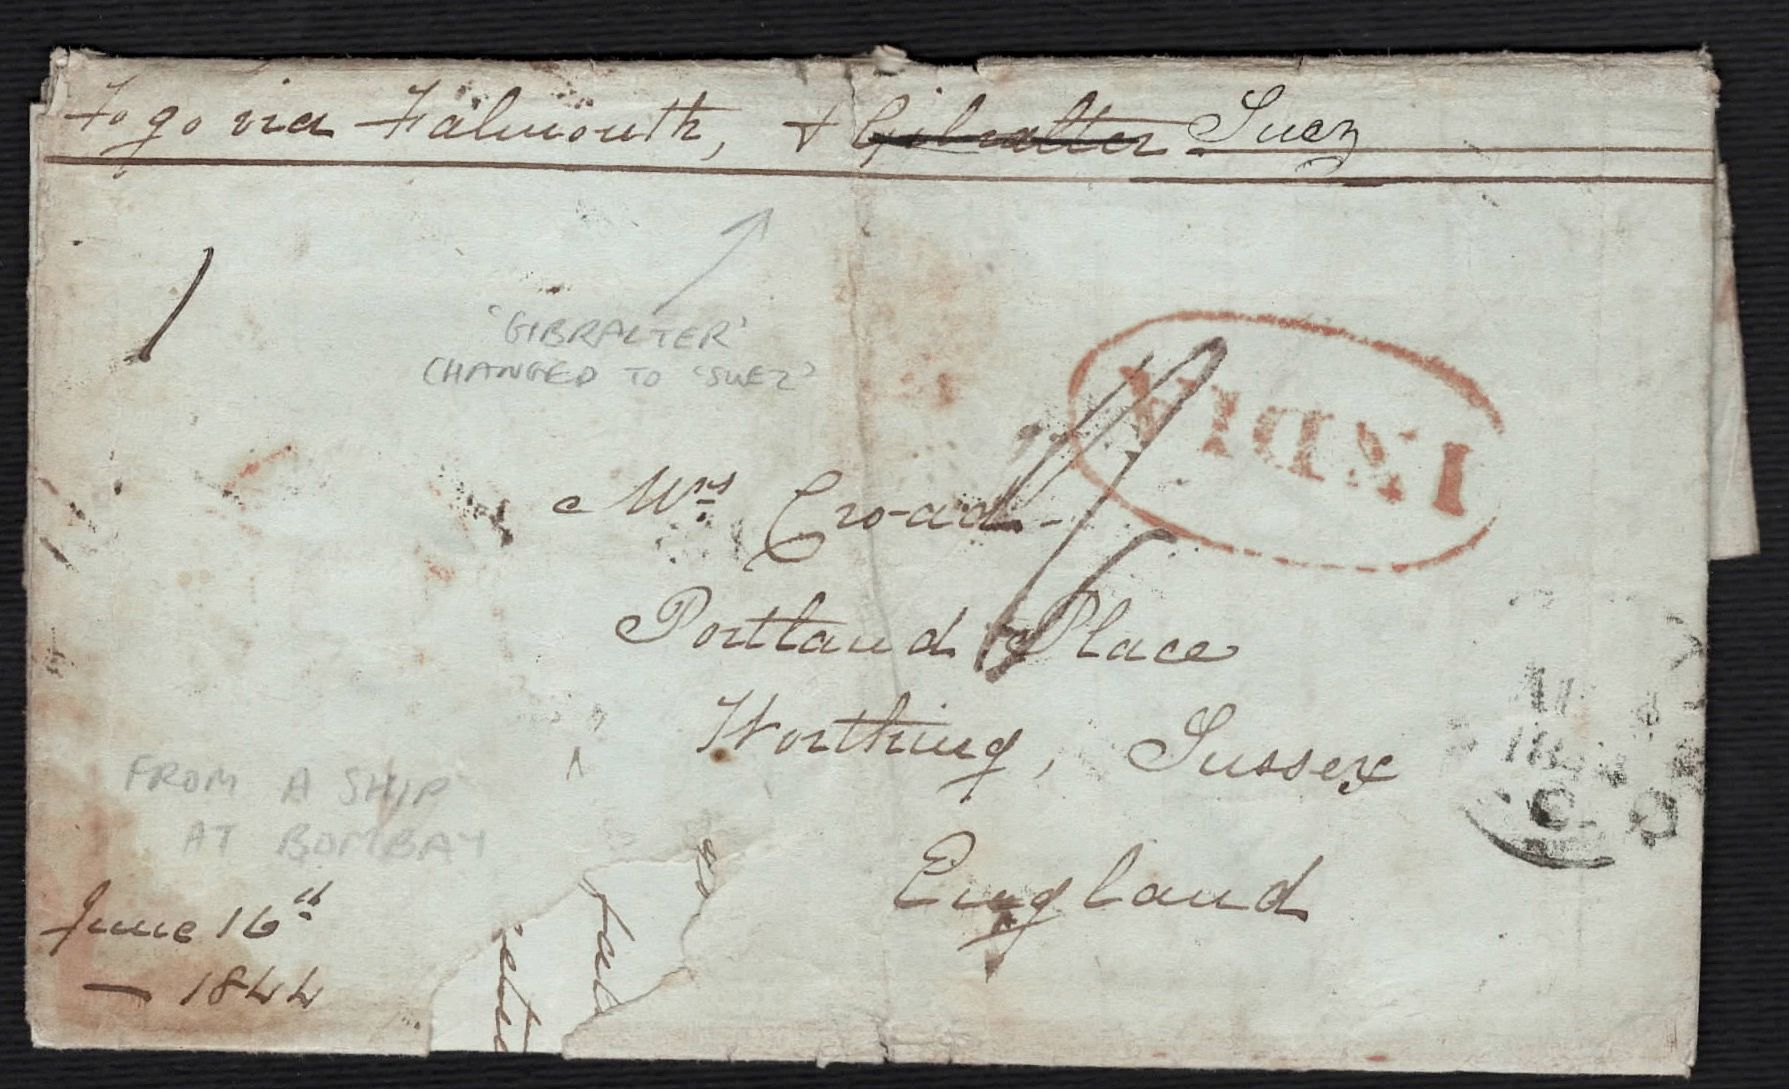 To go via Falmouth, & Gibralter Suez
'GIBRALTER'
CHANGED TO 'SUEZ'
INDIA
Mrs Croad
Portland Place
Worthing, Sussex
England
FROM A SHIP
AT BOMBAY
June 16th
— 1844